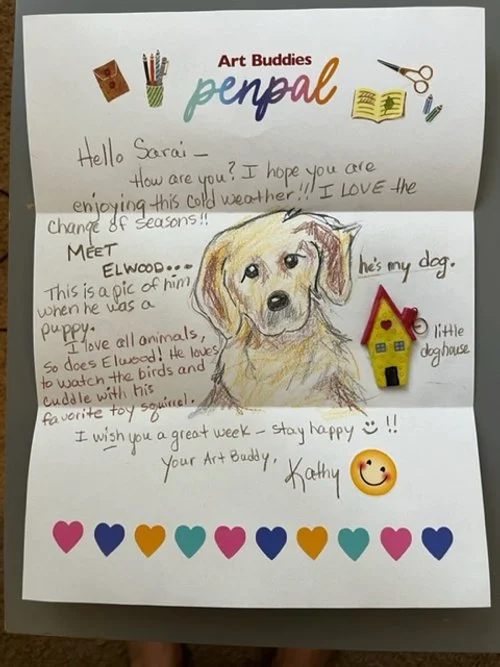 Art Buddies
penpal
Hello Sarai –
How are you? I hope you are
enjoying this cold weather!! I LOVE the
change of seasons!!
MEET
ELWOOD...
he's my dog.
This is a pic of him
when he was a
puppy.
little
doghouse
I love all animals,
so does Elwood! He loves
to watch the birds and
cuddle with his
favorite toy squirrel.
I wish you a great week – stay happy !!
Your Art Buddy,
Kathy